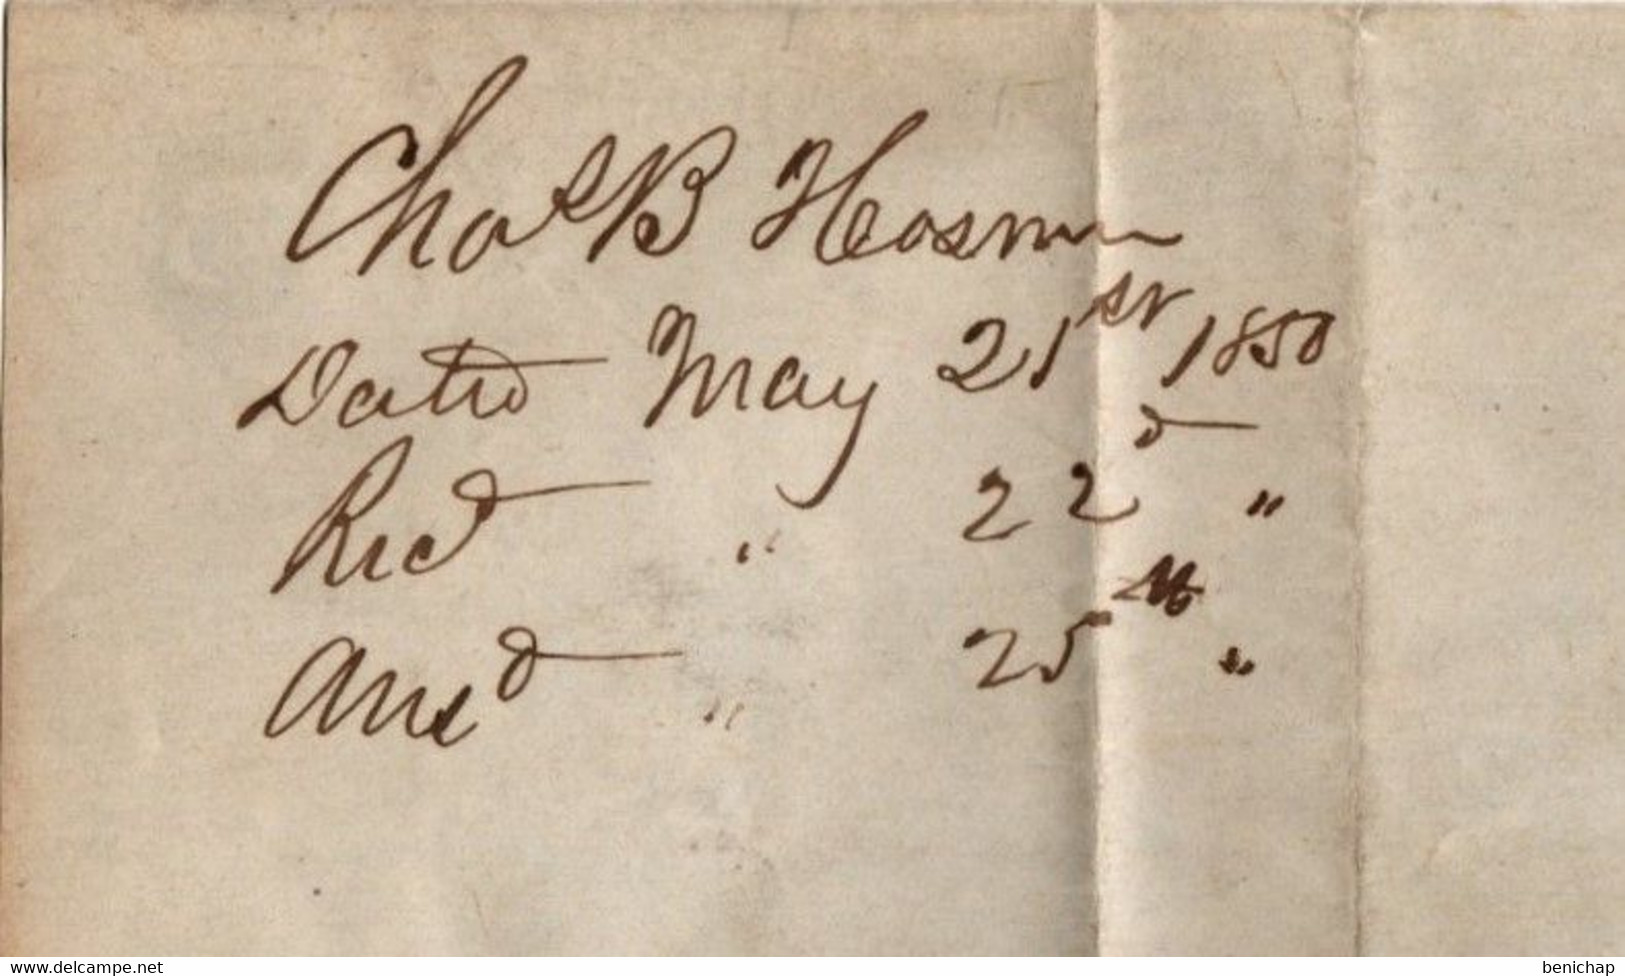 Chas B Hosmer
Dated May 21st 1850
Recd " 22d "
Ansd " 25th "
www.delcampe.net benichap